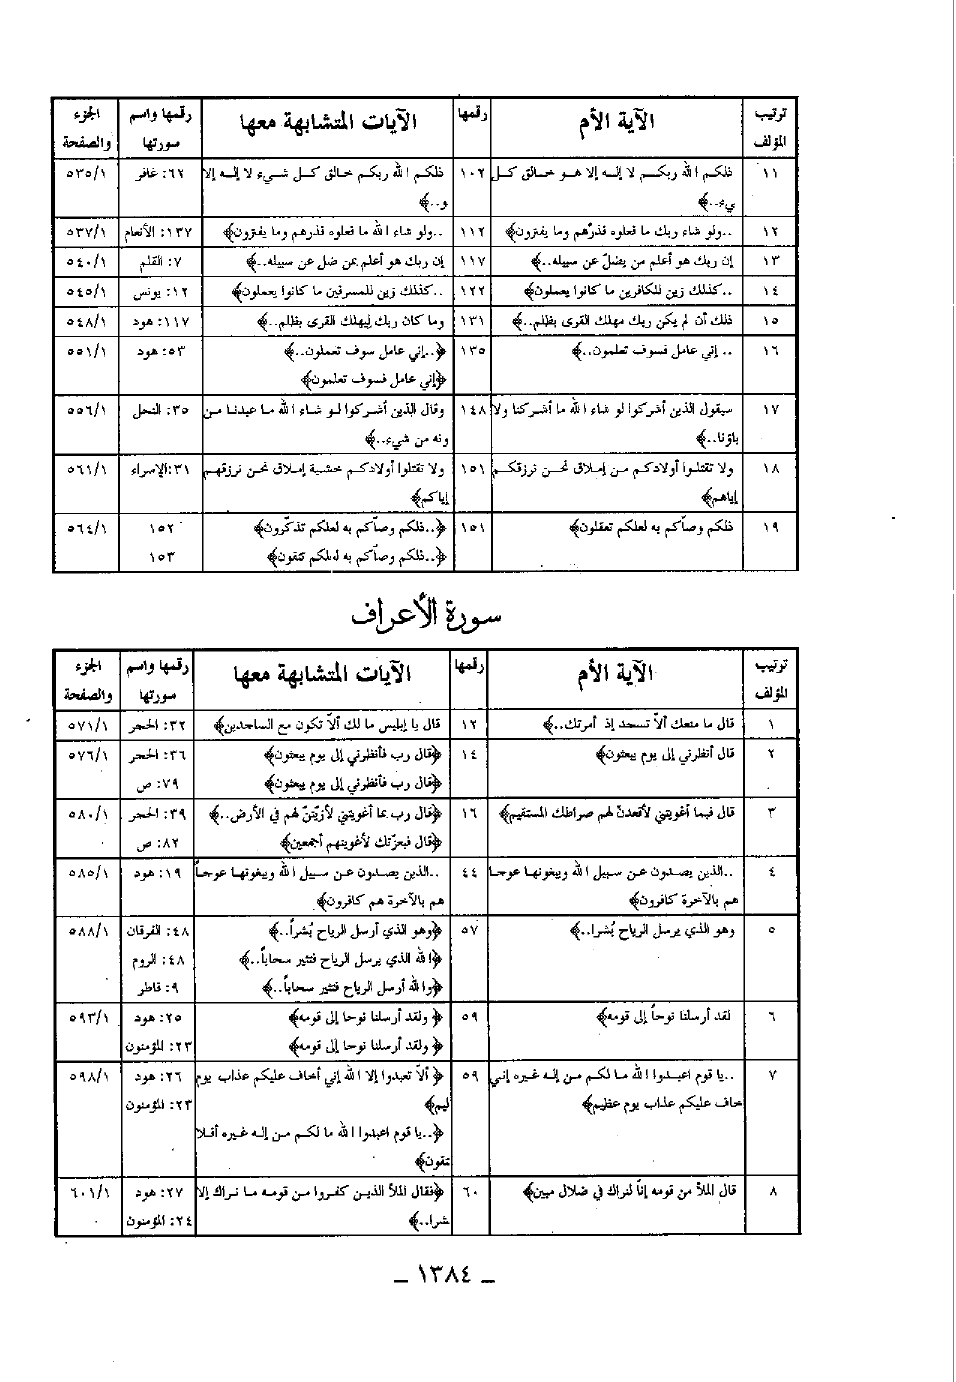 ترتيب المؤلف | الآية الأم | رقمها | الآيات المتشابهة معها | رقمها واسم سورتها | الجزء والصفحة
١١ | ذلكم الله ربكم لا إله إلا هو خالق كل | ١٠٢ | ذلكم الله ربكم خالق كل شيء لا إله إلا | ٦٢: غافر | ٥٣٥/١
يء..﴾ | و..﴾
١٢ | ..ولو شاء ربك ما فعلوه فذرهم وما يفترون﴾ | ١١٢ | ..ولو شاء الله ما فعلوه فذرهم وما يفترون﴾ | ١٣٧: الأنعام | ٥٣٧/١
١٣ | إن ربك هو أعلم من يضلّ عن سبيله..﴾ | ١١٧ | إن ربك هو أعلم بمن ضل عن سبيله..﴾ | ٧: القلم | ٥٤٠/١
١٤ | ..كذلك زين للكافرين ما كانوا يعملون﴾ | ١٢٢ | ..كذلك زين للمسرفين ما كانوا يعملون﴾ | ١٢: يونس | ٥٤٥/١
١٥ | ذلك أن لم يكن ربك مهلك القرى بظلم..﴾ | ١٣١ | وما كان ربك ليهلك القرى بظلم..﴾ | ١١٧: هود | ٥٤٨/١
١٦ | .. إني عامل فسوف تعلمون..﴾ | ١٣٥ | ﴿..إني عامل سوف تعملون..﴾ | ٥٣: هود | ٥٥١/١
﴿إني عامل فسوف تعلمون﴾
١٧ | سيقول الذين أشركوا لو شاء الله ما أشركنا ولا | ١٤٨ | وقال الذين أشركوا لو شاء الله ما عبدنا من | ٣٥: النحل | ٥٥٦/١
باؤنا..﴾ | ونه من شيء..﴾
١٨ | ولا تقتلوا أولادكم من إملاق نحن نرزقكم | ١٥١ | ولا تقتلوا أولادكم خشية إملاق نحن نرزقهم | ٣١:الإسراء | ٥٦١/١
إياهم﴾ | إياكم﴾
١٩ | ذلكم وصاكم به لعلكم تعقلون﴾ | ١٥١ | ﴿..ذلكم وصاكم به لعلكم تذكّرون﴾ | ١٥٢ | ٥٦٤/١
﴿..ذلكم وصاكم به لعلكم تتقون﴾ | ١٥٣
سورة الأعراف
ترتيب المؤلف | الآية الأم | رقمها | الآيات المتشابهة معها | رقمها واسم سورتها | الجزء والصفحة
١ | قال ما منعك ألاّ تسجد إذ أمرتك..﴾ | ١٢ | قال يا إبليس ما لك ألاّ تكون مع الساجدين﴾ | ٣٢: الحجر | ٥٧١/١
٢ | قال أنظرني إلى يوم يبعثون﴾ | ١٤ | ﴿قال رب فأنظرني إلى يوم يبعثون﴾ | ٣٦: الحجر | ٥٧٦/١
﴿قال رب فأنظرني إلى يوم يبعثون﴾ | ٧٩: ص
٣ | قال فبما أغويتني لأقعدنّ لهم صراطك المستقيم﴾ | ١٦ | ﴿قال رب بما أغويتني لأزيّننّ لهم في الأرض..﴾ | ٣٩: الحجر | ٥٨٠/١
﴿قال فبعزّتك لأغوينهم أجمعين﴾ | ٨٢: ص
٤ | ..الذين يصدون عن سبيل الله ويبغونها عوجا | ٤٤ | ..الذين يصدون عن سبيل الله ويبغونها عوجاً | ١٩: هود | ٥٨٥/١
هم بالآخرة كافرون﴾ | هم بالآخرة هم كافرون﴾
٥ | وهو الذي يرسل الرياح بُشرا..﴾ | ٥٧ | ﴿وهو الذي أرسل الرياح بُشراً..﴾ | ٤٨: الفرقان | ٥٨٨/١
﴿الله الذي يرسل الرياح فتثير سحاباً..﴾ | ٤٨: الروم
﴿والله أرسل الرياح فتثير سحاباً..﴾ | ٩: فاطر
٦ | لقد أرسلنا نوحاً إلى قومه﴾ | ٥٩ | ﴿ ولقد أرسلنا نوحا إلى قومه﴾ | ٢٥: هود | ٥٩٣/١
﴿ ولقد أرسلنا نوحا إلى قومه﴾ | ٢٣: المؤمنون
٧ | ..يا قوم اعبدوا الله ما لكم من إله غيره إني | ٥٩ | ﴿ ألاّ تعبدوا إلا الله إني أخاف عليكم عذاب يوم | ٢٦: هود | ٥٩٨/١
خاف عليكم عذاب يوم عظيم﴾ | ليم﴾ | ٢٣: المؤمنون
﴿..يا قوم اعبدوا الله ما لكم من إله غيره أفلا
تقون﴾
٨ | قال الملأ من قومه إنا لنراك في ضلال مبين﴾ | ٦٠ | ﴿فقال الملأ الذين كفروا من قومه ما نراك إلا | ٢٧: هود | ٦٠١/١
شرا..﴾ | ٢٤: المؤمنون
ـ ١٣٨٤ ـ